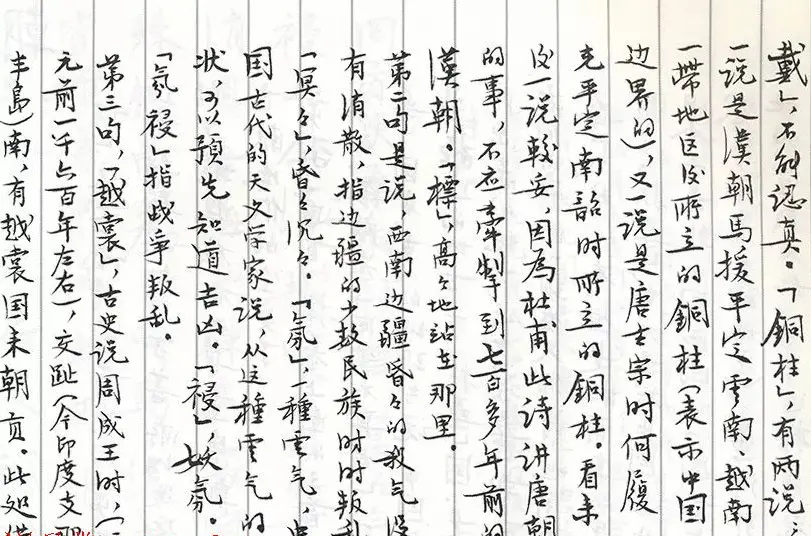 戴」,不能認真。「銅柱」,有两说,
一说是漢朝馬援平定雲南、越南
一帶地区後所立的銅柱(表示中国
边界的),又一说是唐玄宗时何履
光平定南詔时所立的銅柱。看来
後一说較妥,因為杜甫此诗讲唐朝
的事,不应牽掣到七百多年前的
漢朝。「標」,高々地站在那里。
第二句是说,西南边疆昏々的殺气没
有消散,指边疆的少数民族时时叛乱
「冥々」,昏々沉々。「氛」,一種雲气,
国古代的天文学家说,从这種雲气的
状,可以预先知道吉凶。「祲」,妖氛。
「氛祲」指战争叛乱。
第三句,「越裳」,古史说周成王时,(
元前一千六百年左右),交趾(今印度支那
半島)南,有越裳国来朝贡。此处借